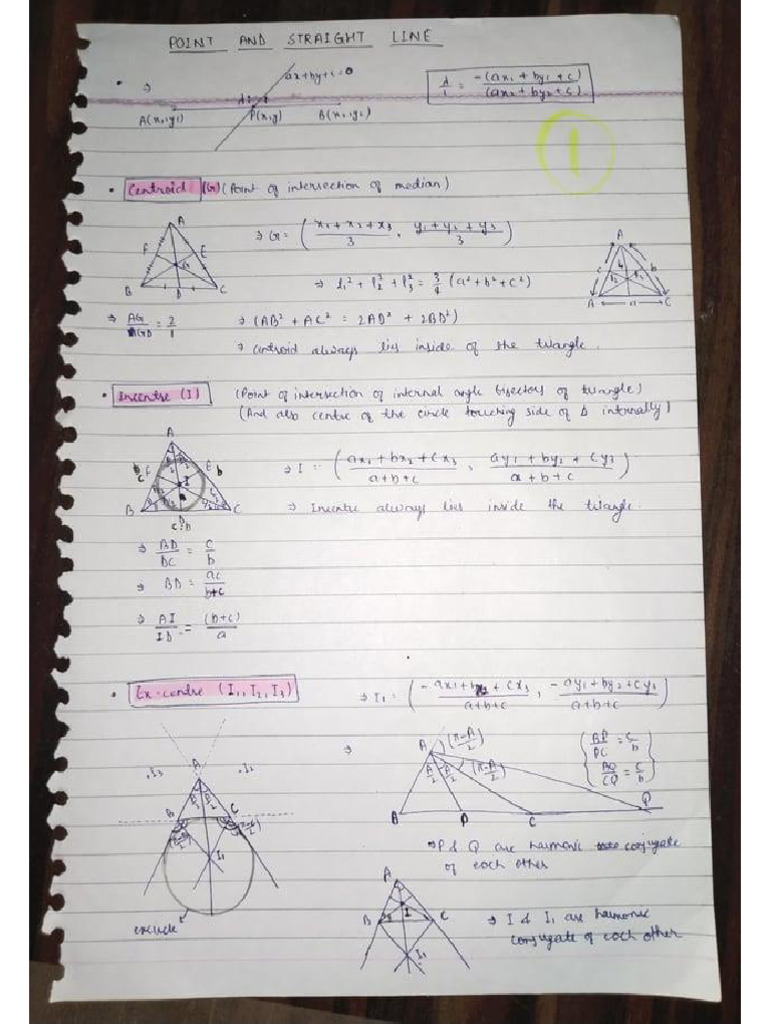 POINT AND STRAIGHT LINE
• ⇒ ax+by+c=0
A(x₁,y₁) P(x,y) B(x₂,y₂)
λ/1 = -(ax₁+by₁+c)/(ax₂+by₂+c)
1
• Centroid (G) (Point of intersection of median)
A F E G B D C
⇒ G = ( (x₁+x₂+x₃)/3 , (y₁+y₂+y₃)/3 )
⇒ l₁²+l₂²+l₃² = 3/4 (a²+b²+c²)
⇒ AG/GD = 2/1
⇒ (AB²+AC² = 2AD²+2BD²)
⇒ Centroid always lies inside of the triangle.
• Incentre (I) (Point of intersection of internal angle bisectors of triangle)
(And also centre of the circle touching side of Δ internally)
A F E b c I B D C
⇒ I = ( (ax₁+bx₂+cx₃)/(a+b+c) , (ay₁+by₂+cy₃)/(a+b+c) )
⇒ Incentre always lies inside the triangle.
⇒ BD/DC = c/b
⇒ BD = ac/(b+c)
⇒ AI/ID = (b+c)/a
• Ex-centre (I₁,I₂,I₃)
⇒ I₁ = ( (-ax₁+bx₂+cx₃)/(a+b+c) , (-ay₁+by₂+cy₃)/(a+b+c) )
.I₃ A .I₂
B C
I₁
excircle
⇒ A (π-A/2) A/2 A/2 (π-A/2)
B P C Q
{ BP/PC = c/b
AQ/CQ = c/b }
⇒ P & Q are harmonic conjugate
of each other
A I B C I₁
⇒ I & I₁ are harmonic
conjugate of each other